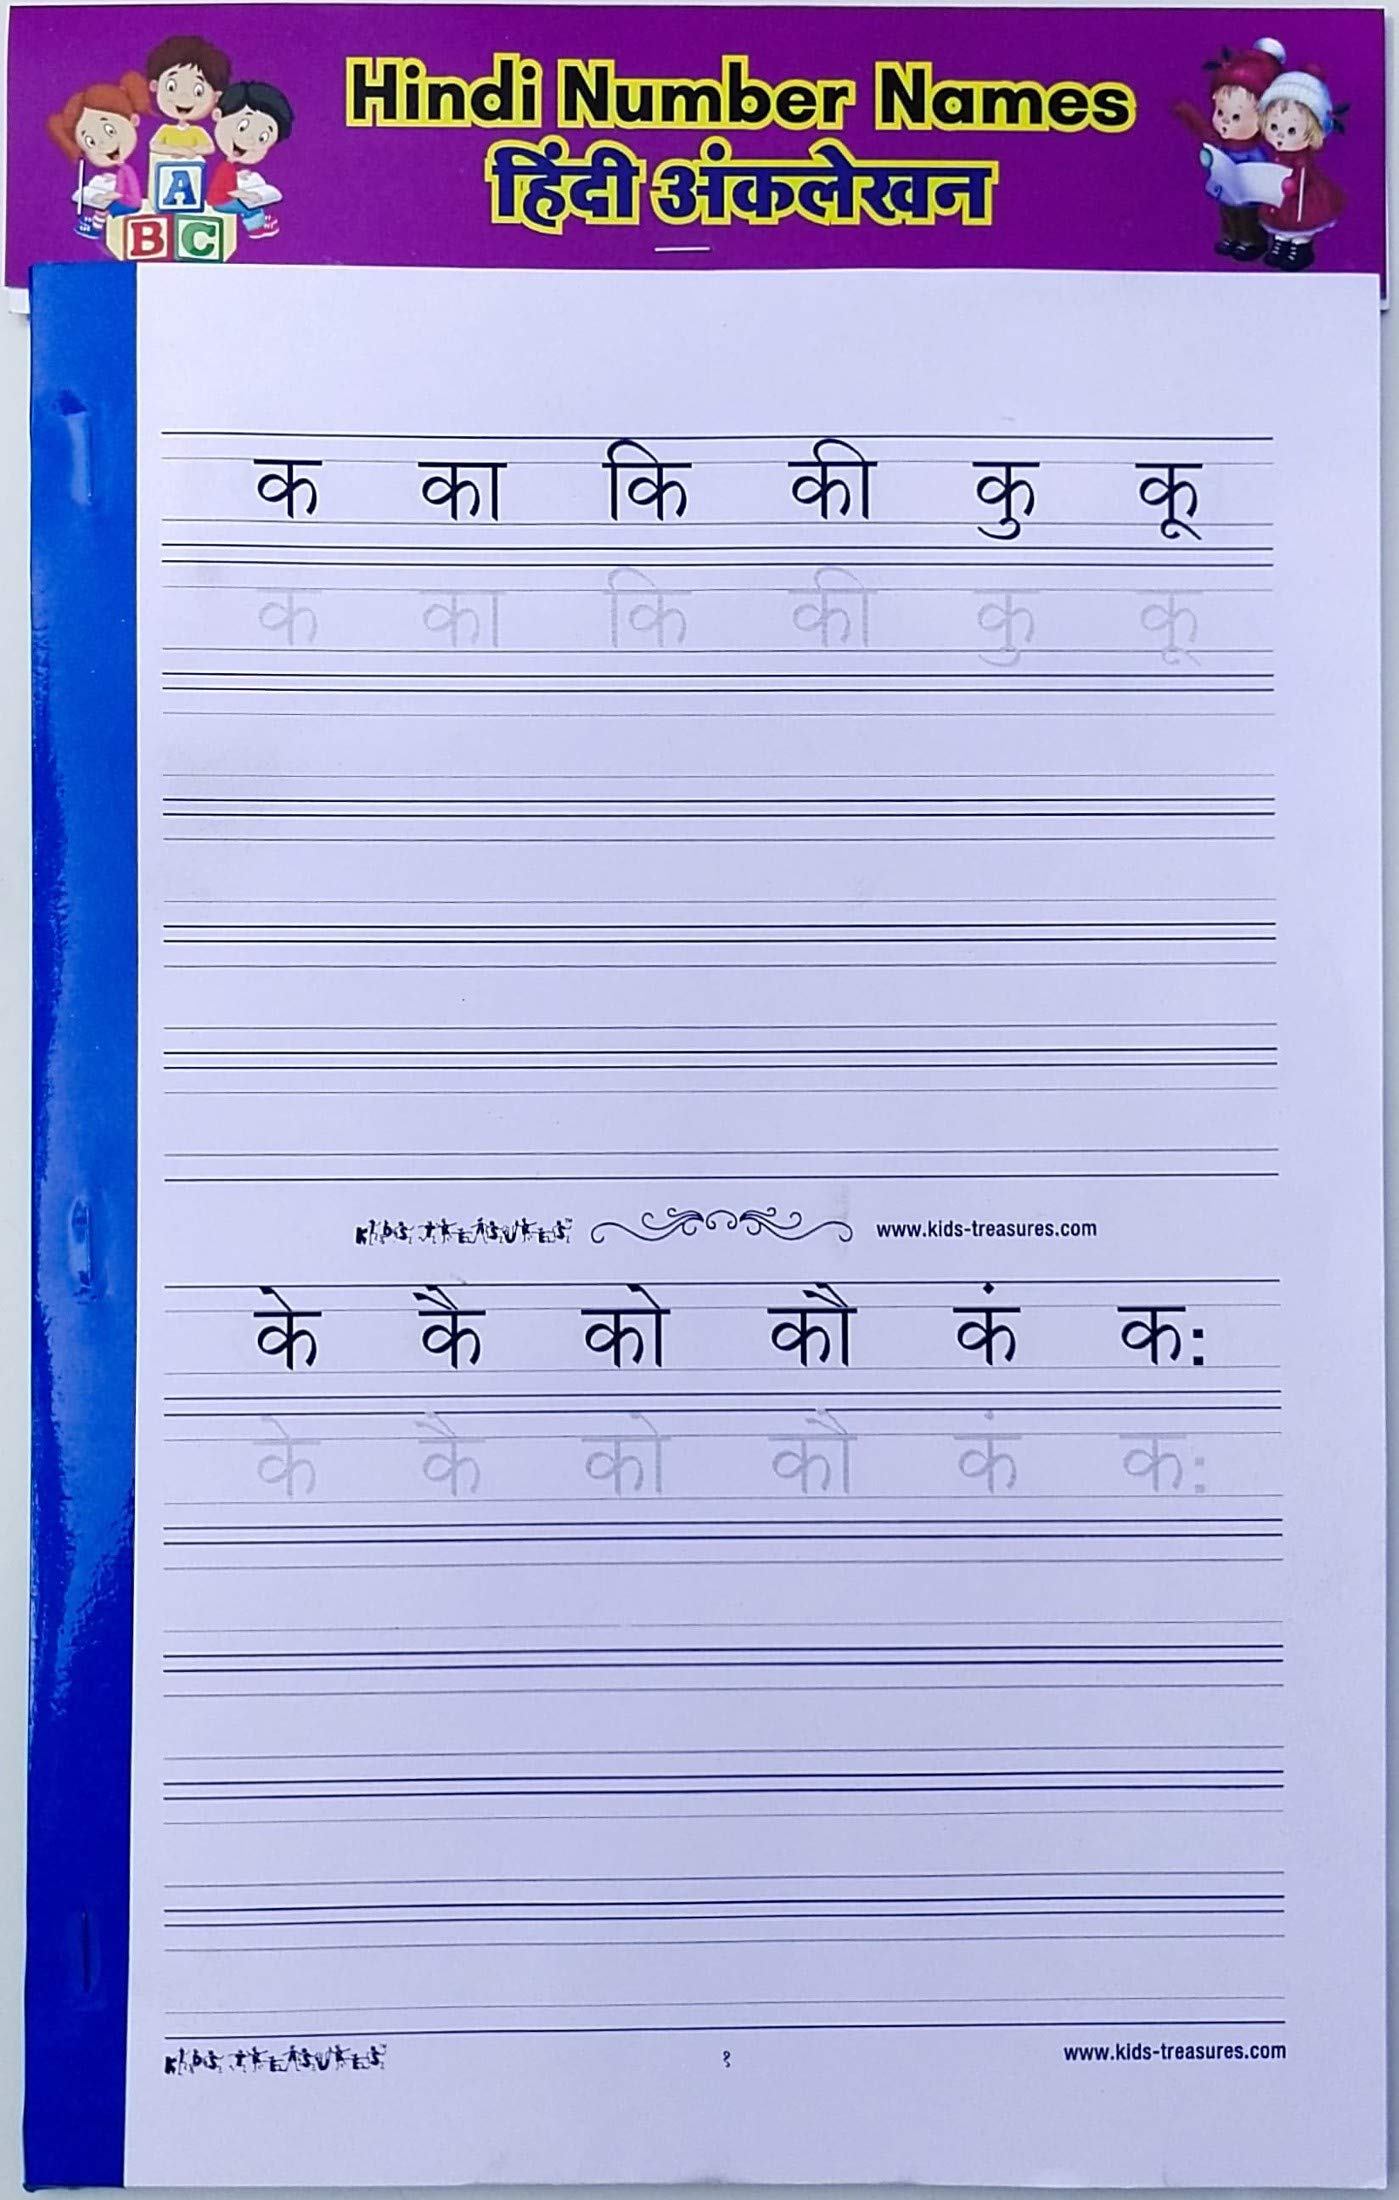 Hindi Number Names
हिंदी अंकलेखन
A
B C
क का कि की कु कू
क का कि की कु कू
KIDS TREASURES™ www.kids-treasures.com
के कै को कौ कं कः
के कै को कौ कं कः
KIDS TREASURES™ १ www.kids-treasures.com